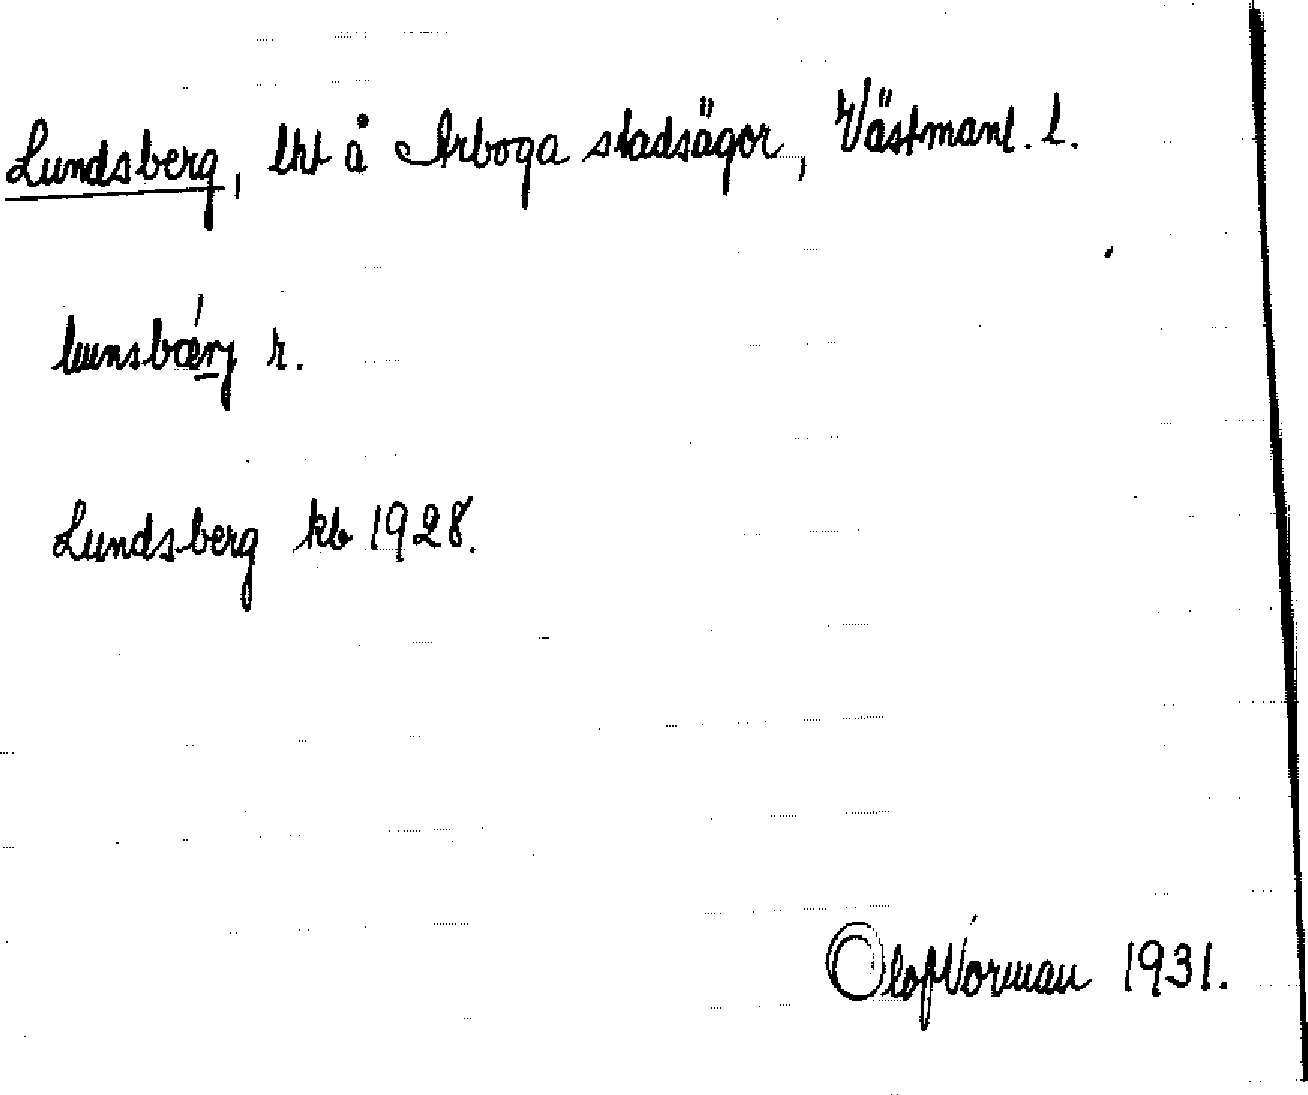 Lundsberg, lht å Arboga stadsägor, Västmanl. l.
lunsbǽrj r.
Lundsberg kb 1928.
Olof Vorman 1931.